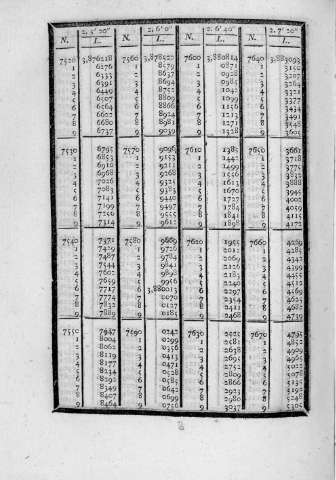 2. 5' 20" 2. 6' 0" 2. 6' 40" 2. 7' 20"
N. L. N. L. N. L. N. L.
7520 3,876218 7560 3,878522 7600 3,880814 7640 3,883093
1 6276 1 8579 1 0871 1 3150
2 6333 2 8637 2 0928 2 3207
3 6391 3 8694 3 0985 3 3264
4 6449 4 8752 4 1042 4 3321
5 6507 5 8809 5 1099 5 3377
6 6564 6 8866 6 1156 6 3434
7 6622 7 8924 7 1213 7 3491
8 6680 8 8981 8 1271 8 3548
9 6737 9 9039 9 1328 9 3605
7530 6795 7570 9096 7610 1385 7650 3661
1 6853 1 9153 1 1442 1 3718
2 6910 2 9211 2 1499 2 3775
3 6968 3 9268 3 1556 3 3832
4 7026 4 9325 4 1613 4 3888
5 7083 5 9383 5 1670 5 3945
6 7141 6 9440 6 1727 6 4002
7 7199 7 9497 7 1784 7 4059
8 7256 8 9555 8 1841 8 4115
9 7314 9 9612 9 1898 9 4172
7540 7371 7580 9669 7620 1955 7660 4229
1 7429 1 9726 1 2012 1 4285
2 7487 2 9784 2 2069 2 4342
3 7544 3 9841 3 2126 3 4399
4 7602 4 9898 4 2183 4 4455
5 7659 5 9956 5 2240 5 4512
6 7717 6 3,880013 6 2297 6 4569
7 7774 7 0070 7 2354 7 4625
8 7832 8 0127 8 2411 8 4682
9 7889 9 0185 9 2468 9 4739
7550 7947 7590 0242 7630 2525 7670 4795
1 8004 1 0299 1 2581 1 4852
2 8062 2 0356 2 2638 2 4909
3 8119 3 0413 3 2695 3 4965
4 8177 4 0471 4 2752 4 5022
5 8234 5 0528 5 2809 5 5078
6 8292 6 0585 6 2866 6 5135
7 8349 7 0642 7 2923 7 5192
8 8407 8 0699 8 2980 8 5248
9 8464 9 0756 9 3037 9 5305